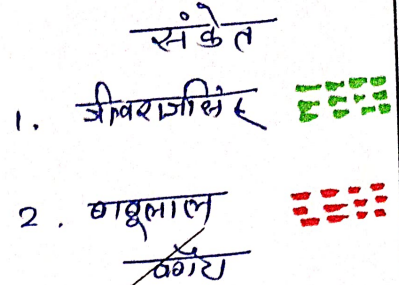 संकेत
1. जीवराजसिंह
2. बाबूलाल